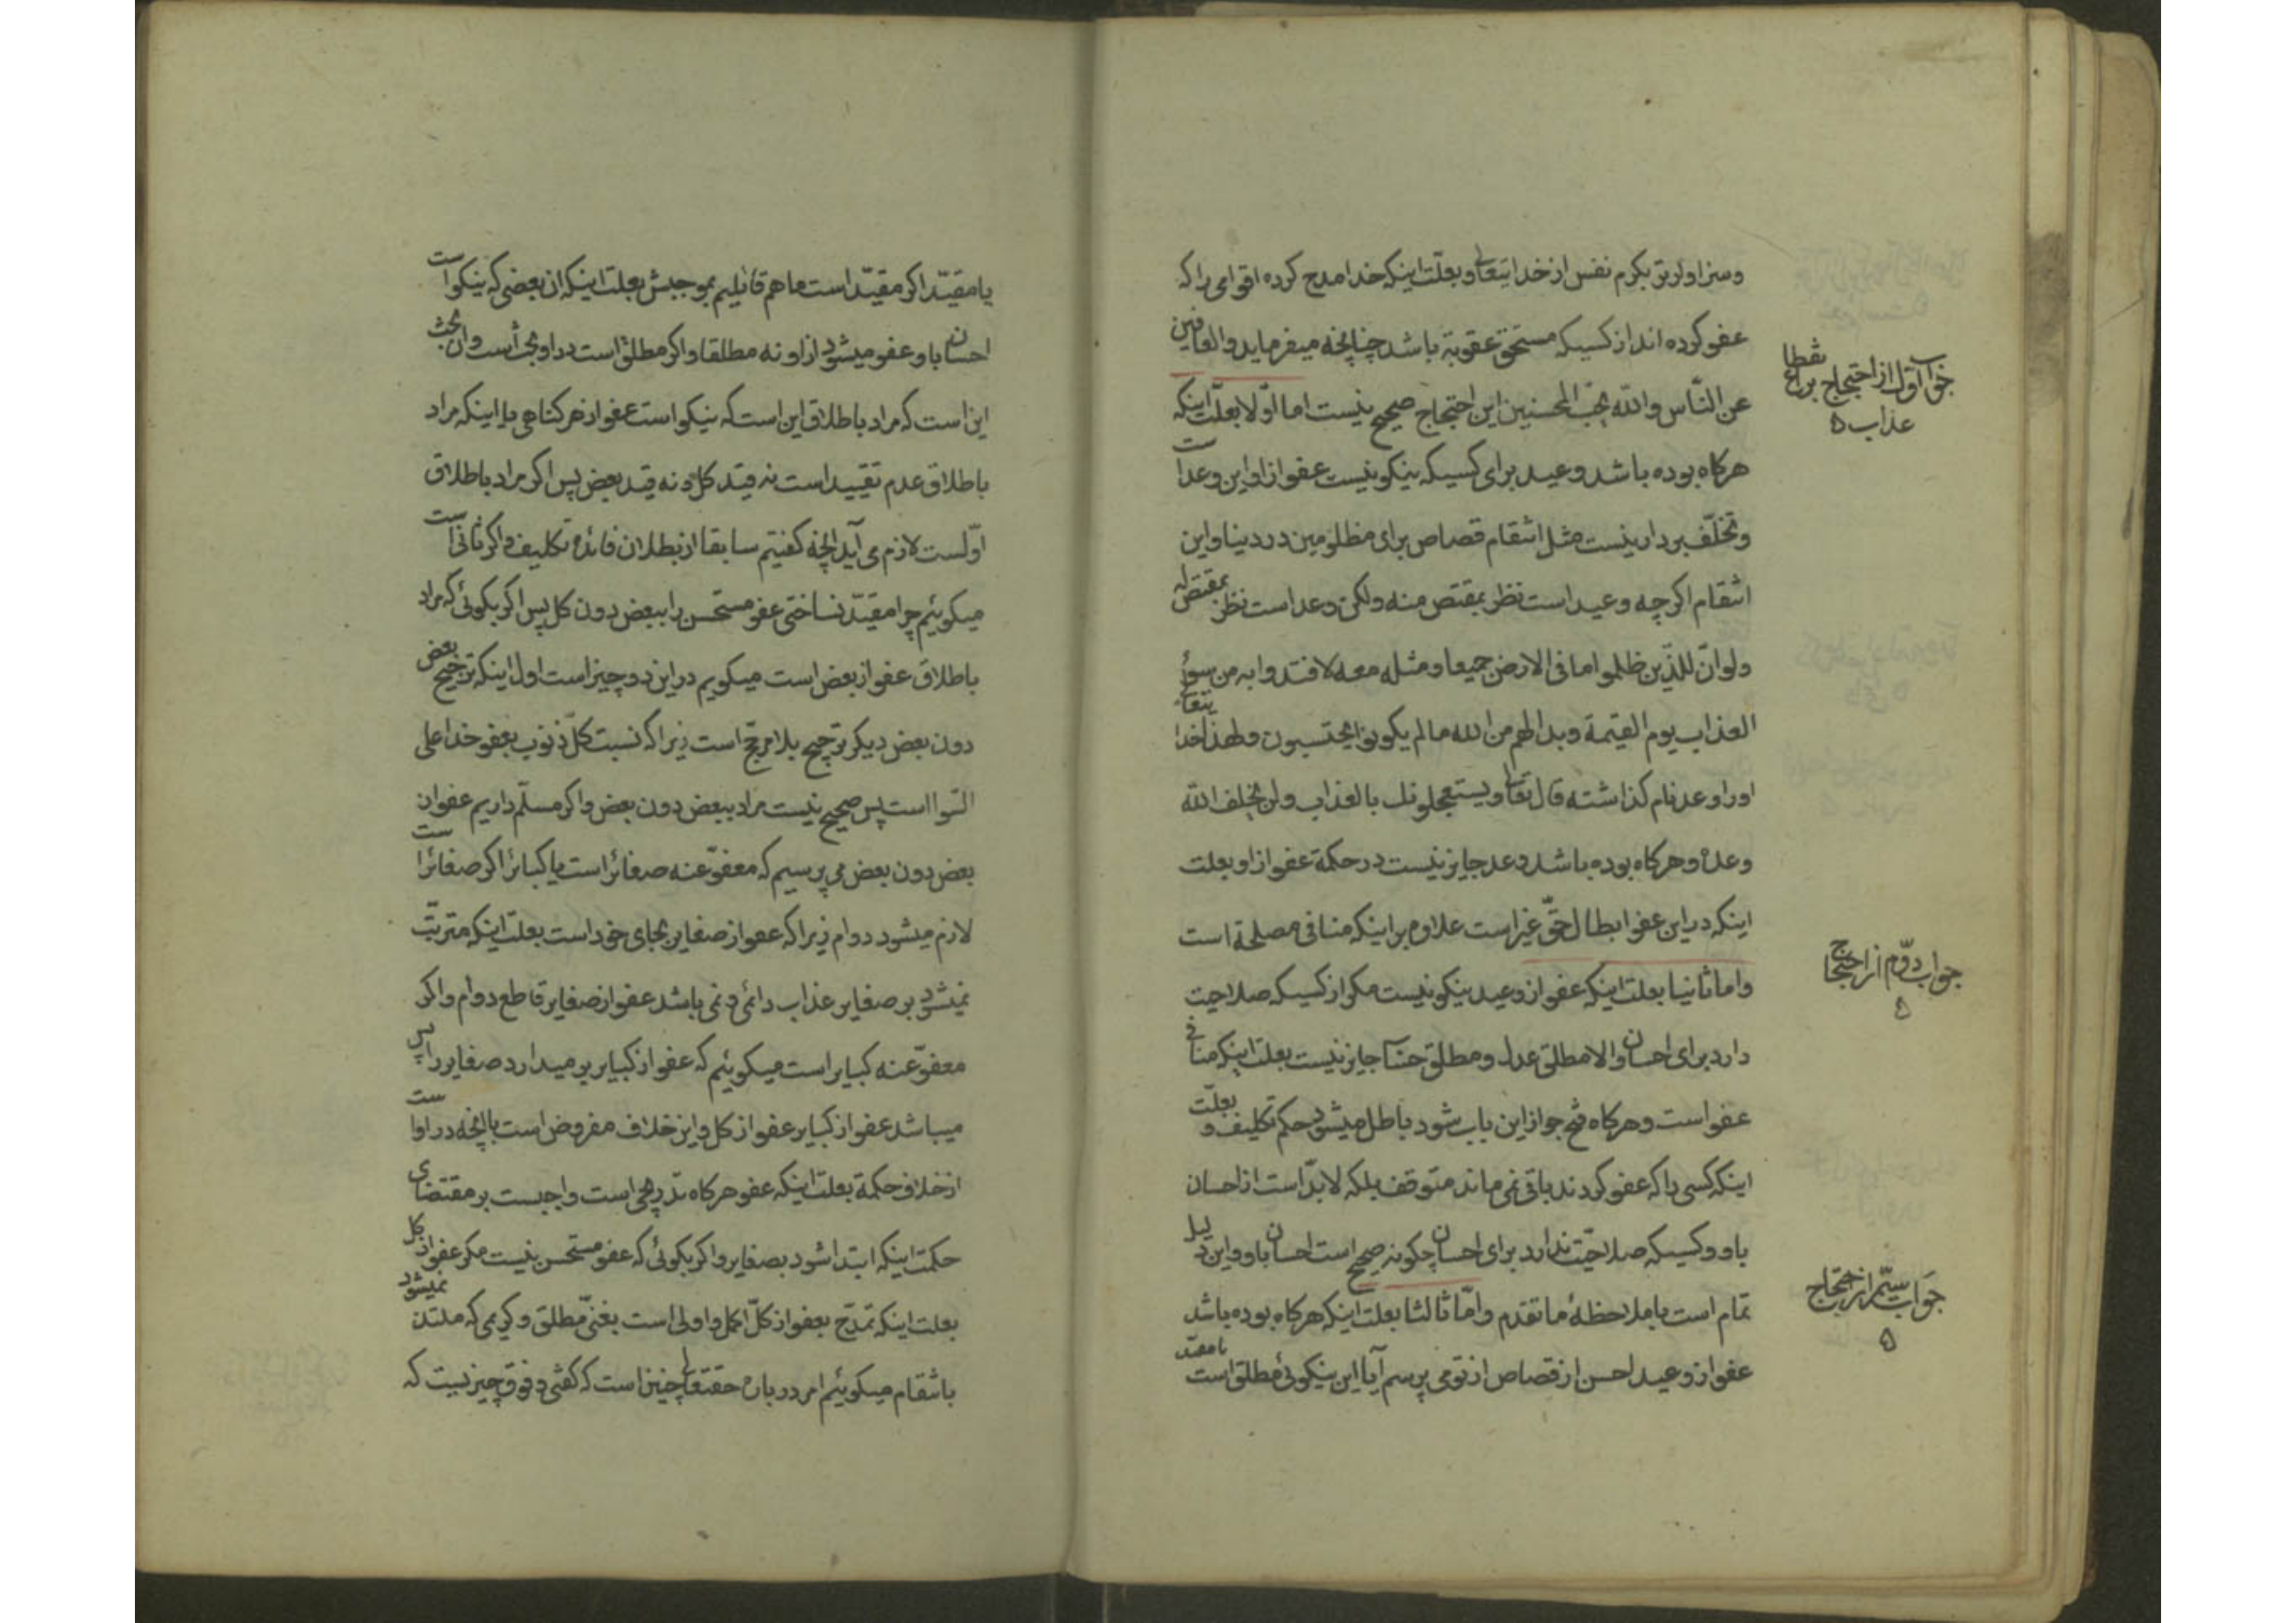 وسزاوارتر بکرم نفس از خدایتعالی و بعلّت اینکه خدا مدح کرده اقوامی را که
عفو کرده اند از کسیکه مستحق عقوبة باشد چنانچه میفرماید والعافین
عن النّاس والله یحبّ المحسنین این احتجاج صحیح نیست اما اوّلا بعلّت اینکه
هرکاه بوده باشد وعید برای کسیکه نیکو نیست عفو از او این وعد است
و تخلّف بردار نیست مثل انتقام قصاص برای مظلومین در دنیا و این
انتقام اکرچه وعید است نظر بمقتص منه ولکن وعد است نظر بمقتص له
ولو انّ للذّین ظلموا ما فی الارض جمیعا و مثله معه لافتدوا به من سوء
العذاب یوم القیمة و بدا لهم من الله ما لم یکونوا یحتسبون و لهذا خدایتعالی
او را وعد نام کذاشته قال تعالی و یستعجلونك بالعذاب و لن یخلف الله
وعده و هرکاه بوده باشد وعد جایز نیست در حکمة عفو از او بعلت
اینکه در این عفو ابطال حقّ غیر است علاوه بر اینکه منافی مصلحة است
و اما ثانیا بعلت اینکه عفو از وعید نیکو نیست مکر از کسیکه صلاحیت
دارد برای احسان والا مطلق عدل و مطلق جایز نیست بعلت اینکه منافی
عفو است و هرکاه فتح جواز این باب شود باطل میشود حکم تکلیف و بعلّت
اینکه کسی را که عفو کردند باقی نمی ماند متوقف بلکه لابدّ است از احسان
باو و کسیکه صلاحیّت ندارد برای احسان چکونه صحیح است احسان باو و این دلیل
تمام است با ملاحظهٔ ما تقدم و امّا ثالثا بعلت اینکه هرکاه بوده باشد
عفو از وعید احسن از قصاص از تو می پرسم آیا این نیکوئی مطلق است یا مقیّد
جواب اوّل از احتجاج بر انقطاع
عذاب
جواب دوّم از احتجاج
جواب سیّم از احتجاج
یا مقیّد اکر مقیّد است ما هم قائلیم بموجبش بعلت اینکه ان بعضی که نیکو است
احسان باو عفو میشود از او نه مطلقا و اکر مطلق است در او بحث است و ان بحث
این است که مراد باطلاق این است که نیکو است عفو از هر کناهی یا اینکه مراد
باطلاق عدم تقیید است نه قید کل و نه قید بعض پس اکر مراد باطلاق
اوّلست لازم می آید آنچه کفتیم سابقا از بطلان فائده تکلیف و اکر ثانی است
میکوئیم چرا مقیّد نساختی عفو مستحسن را ببعض دون کل پس اکر بکوئی که مراد
باطلاق عفو از بعض است میکویم در این دو چیز است اول اینکه ترجیح بعض
دون بعض دیکر ترجیح بلا مرجّح است زیرا که نسبت کلّ ذنوب بعفو خدا علی
السّوا است پس صحیح نیست مراد ببعض دون بعض و اکر مسلّم داریم عفو از
بعض دون بعض می پرسیم که معفوّ عنه صغائر است یا کبائر اکر صغائر است
لازم میشود دوام زیرا که عفو از صغایر بجای خود است بعلت اینکه مترتّب
نمیشود بر صغایر عذاب دائمی و نمی باشد عفو از صغایر قاطع دوام و اکر
معفوّ عنه کبایر است میکوئیم که عفو از کبایر بر میدارد صغایر را پس
میباشد عفو از کبایر عفو از کل و این خلاف مفروض است با آنچه در او است
از خلاف حکمة بعلت اینکه عفو هرکاه تدریجی است واجبست بر مقتضای
حکمت اینکه ابتدا شود بصغایر و اکر بکوئی که عفو مستحسن نیست مکر عفو از کل
بعلت اینکه تمدّح بعفو از کلّ اکمل و اولی است بغنیّ مطلق و کریمی که ملتذ نمیشود
بانتقام میکوئیم امر در باره حقتعالی چنین است که کفتی و فوق چیزیست که